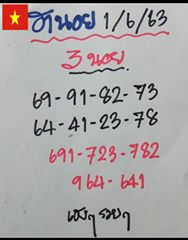 ฮานอย 1/6/63
3 นอย
69-91-82-73
64-41-23-78
691-723-782
964-641
เฮงๆ รวยๆ